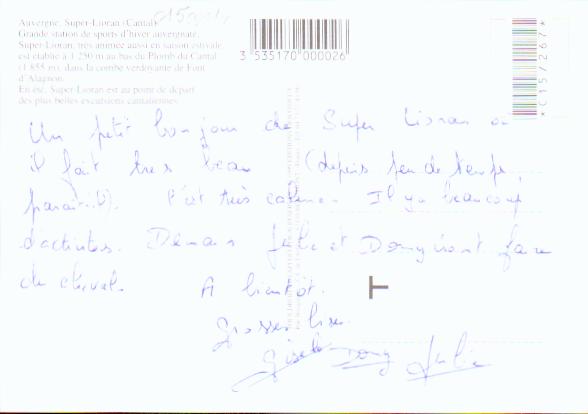 Auvergne, Super-Lioran (Cantal)
Grande station de sports d'hiver auvergnate,
Super-Lioran, très animée aussi en saison estivale,
est établie à 1 250 m au bas du Plomb du Cantal
(1 855 m), dans la combe verdoyante de Font
d'Alagnon.
En été, Super-Lioran est au point de départ
des plus belles excursions cantaliennes.
3 535170 000026
*C15/267*
Un petit bonjour de Super Lioran où
il fait très beau (depuis peu de temps,
paraît-il). C'est très calme. Il y a beaucoup
d'activités. Demain Julie et Domy vont faire
du cheval. A bientôt.
Grosses bises.
Gisèle Domy Julie